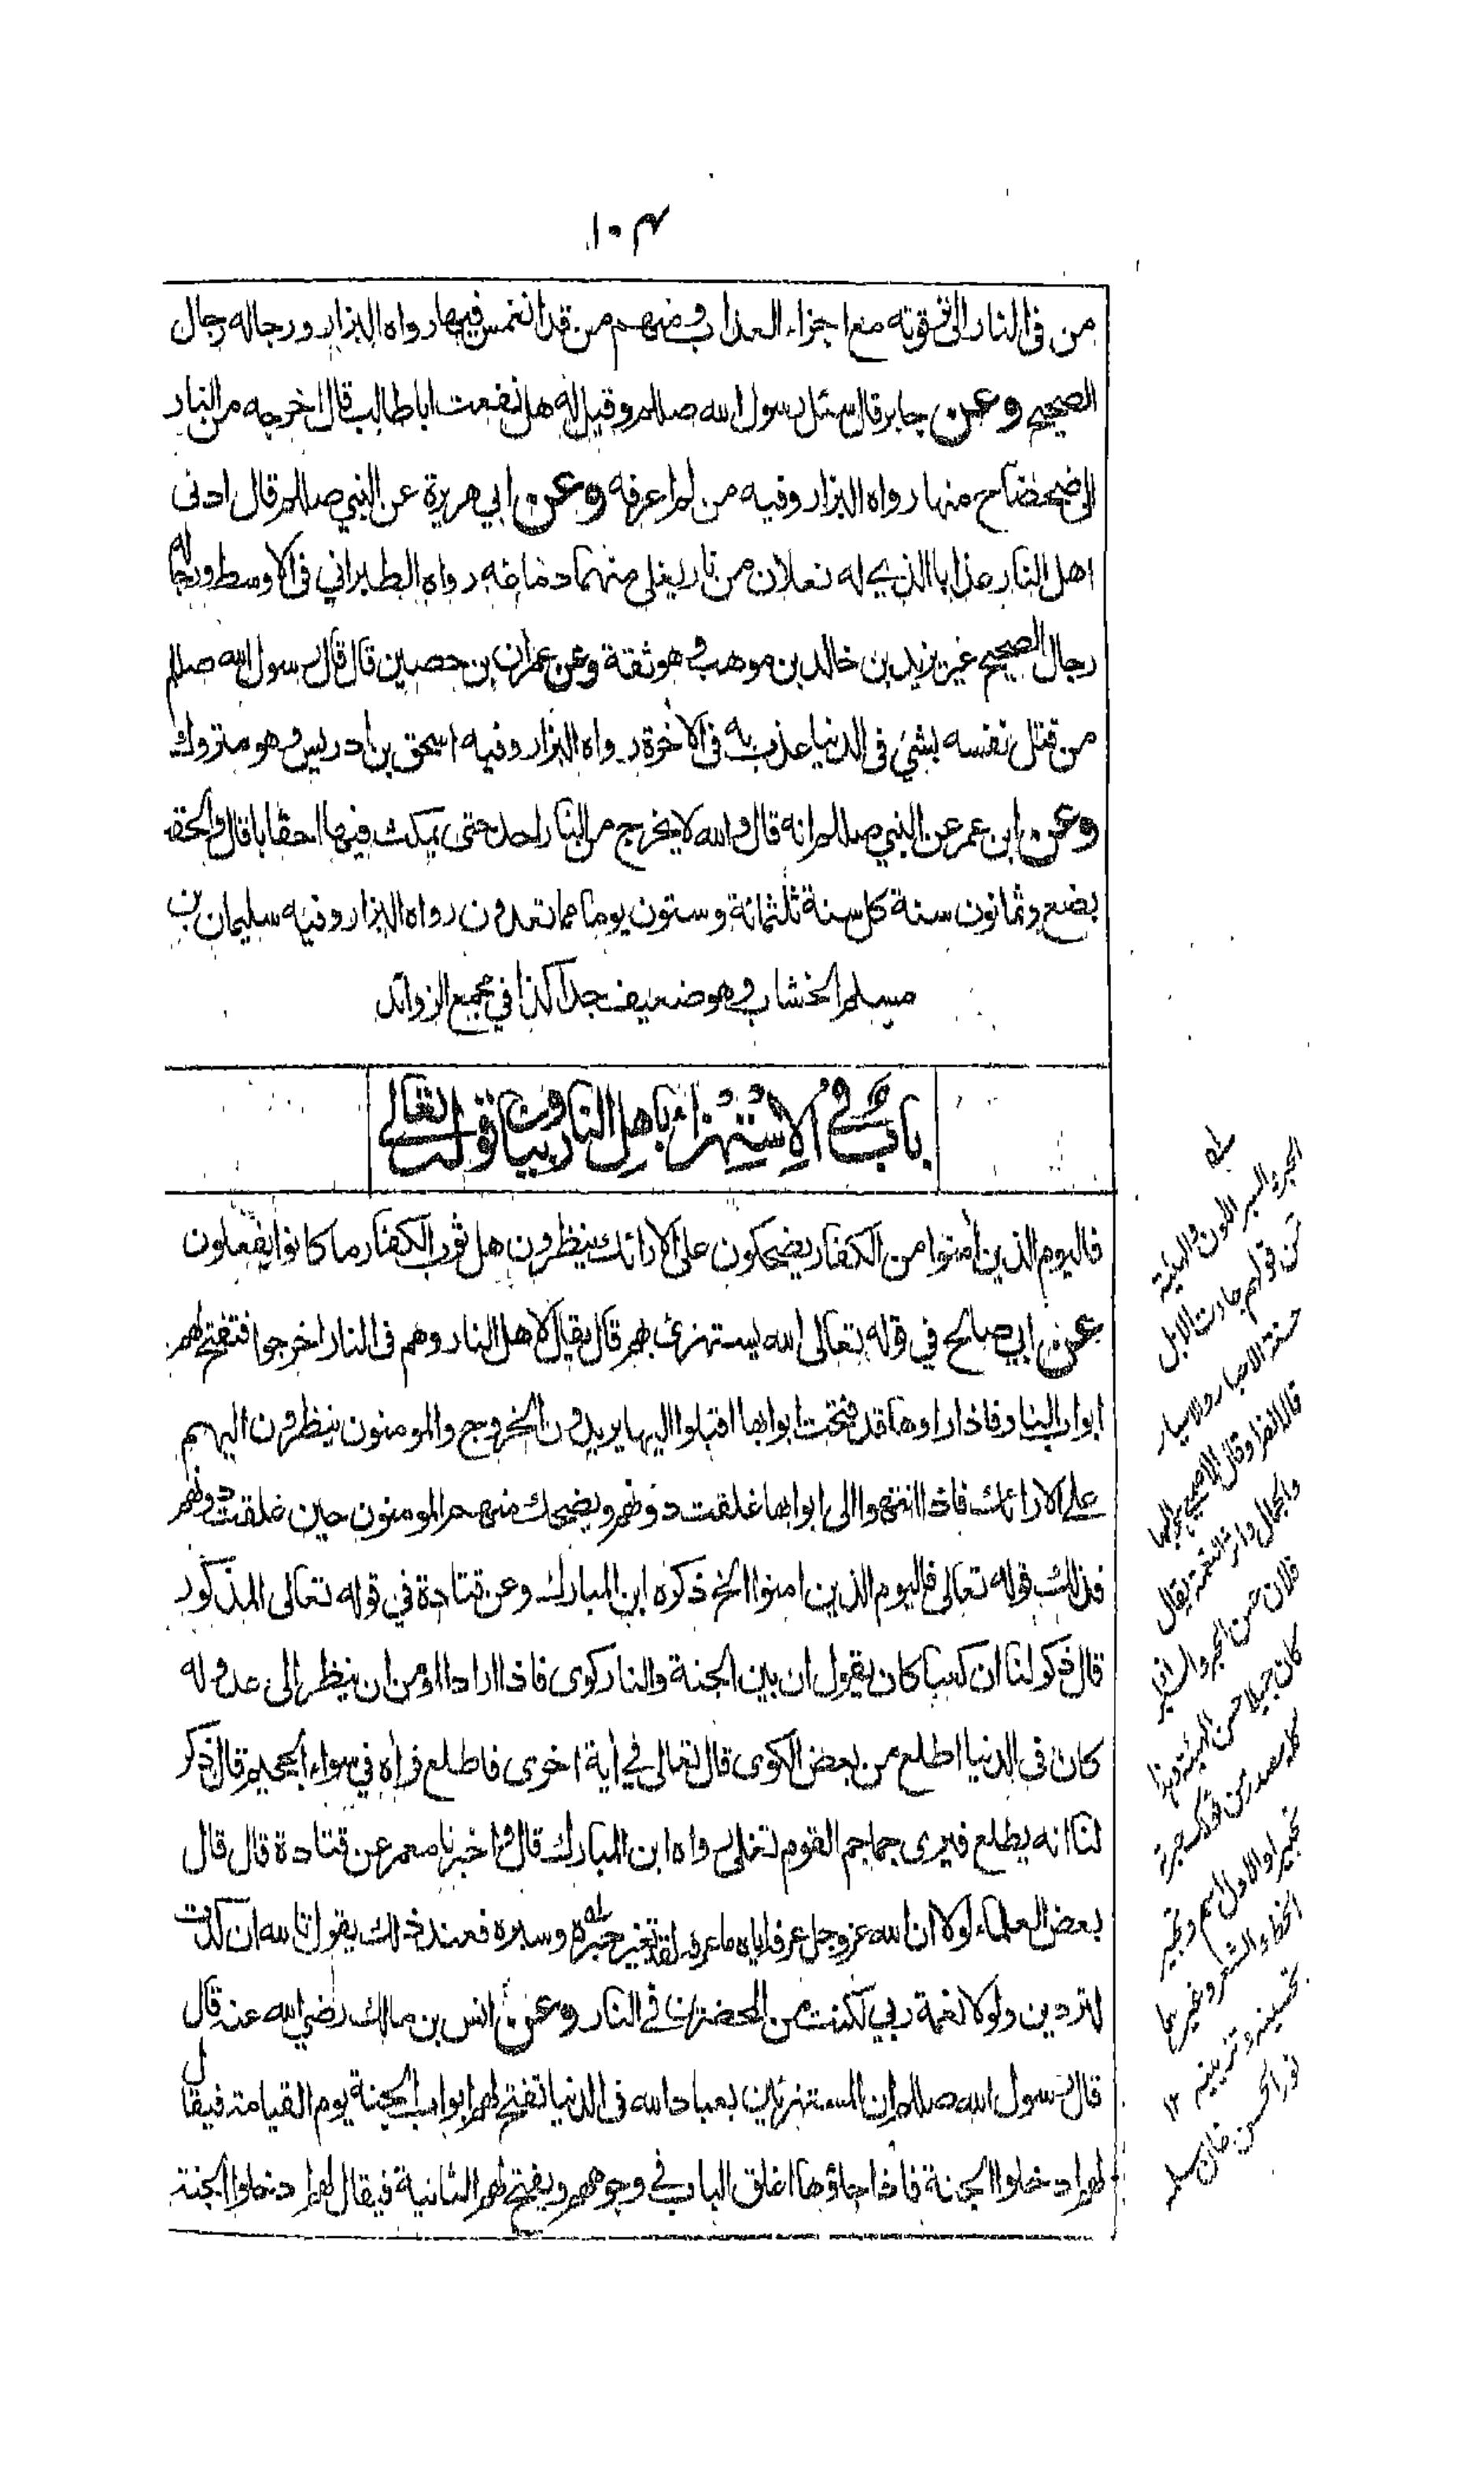 ١٠٣
من فى النار الى ترقوته مع اجزاء العذاب ومنهم من قد انغمس فيها رواه البزار ورجاله رجال
الصحيح وعن جابر قال سئل رسول الله صللم وقيل له هل نفعت ابا طالب قال اخرجه من النار
الى ضحضاح منها رواه البزار وفيه من لم اعرفه وعن ابي هريرة عن النبي صللم قال ادنى
اهل النار عذابا الذي له نعلان من نار يغلى منهما دماغه رواه الطبراني فى الاوسط ورجاله
رجال الصحيح غير يزيد بن خالد بن موهب وهو ثقة وعن عمران بن حصين قال قال رسول الله صللم
من قتل نفسه بشئ فى الدنيا عذب به فى الاخرة رواه البزار وفيه اسحق بن ادريس وهو متروك
وعن ابن عمر عن النبي صللم انه قال والله لا يخرج من النار احد حتى يمكث فيها احقابا قال والحقب
بضع وثمانون سنة كل سنة ثلثمائة وستون يوما مما تعدون رواه البزار وفيه سليمان بن
مسلم الخشاب وهو ضعيف جدا كذا في مجمع الزوائد
باب في الاستهزاء باهل النار وبيان قوله تعالى
فاليوم الذين أمنوا من الكفار يضحكون على الارائك ينظرون هل ثوب الكفار ما كانوا يفعلون
عن ابي صالح في قوله تعالى الله يستهزئ بهم قال يقال لاهل النار وهم فى النار اخرجوا فتفتح لهم
ابواب النار فاذا راوها قد فتحت ابوابها اقبلوا اليها يريدون الخروج والمومنون ينظرون اليهم
على الارائك فاذا انتهوا الى ابوابها غلقت دونهم ويضحك منهم المومنون حين غلقت دونهم
فذلك قوله تعالى فاليوم الذين امنوا الخ ذكره ابن المبارك وعن قتادة في قوله تعالى المذكور
قال ذكر لنا ان كعبا كان يقول ان بين الجنة والنار كوى فاذا اراد المؤمن ان ينظر الى عدو له
كان فى الدنيا اطلع من بعض الكوى قال تعالى في أية اخرى فاطلع فرأه في سواء الجحيم قال ذكر
لنا انه يطلع فيرى جماجم القوم تغلى رواه ابن المبارك قال واخبرنا معمر عن قتادة قال قال
بعض العلماء لولا ان الله عز وجل عرفه اياه ما عرفه لقد تغير حبره وسبره فعند ذلك يقول تالله ان كدت
لتردين ولولا نعمة ربي لكنت من المحضرين في النار وعن انس بن مالك رضي الله عنه قال
قال رسول الله صللم ان المستهزئين بعباد الله فى الدنيا تفتح لهم ابواب الجنة يوم القيامة فيقال
لهم ادخلوا الجنة فاذا جاؤها اغلق الباب في وجوههم ويفتح لهم الثانية فيقال لهم ادخلوا الجنة
الحبر والسبر اللون والهيئة
من قولهم جاءت الابل
حسنة الاحبار والاسبار
قاله الفرا وقال الاصمعي هو البها
والجمال واثر النعمة يقال
فلان حسن الحبر والسبر اذا
كان جميلا حسن الهيئة
مصدر من قولك حبرته
تحبيرا والاول اسم وتحبير
الخط والشعر وغيرهما
تحسينه وتزيينه ١٢
نور الحسن خان سلمه